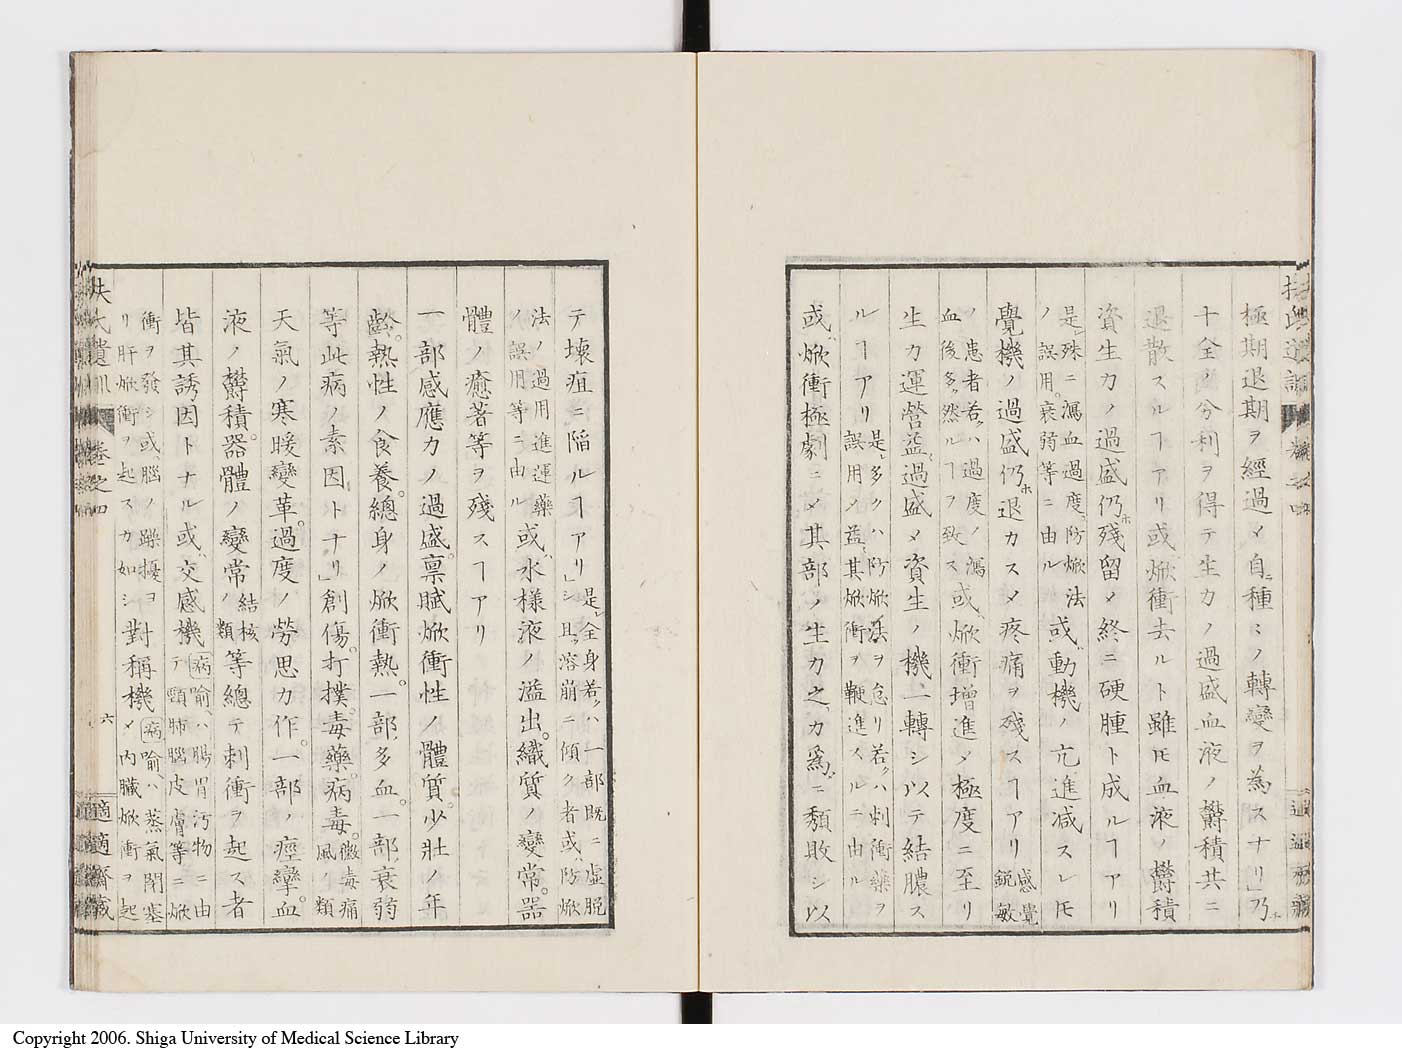 極期退期ヲ經過〆自ニ種〻ノ轉變ヲ為スナリ」乃チ
十全ノ分利ヲ得テ生力ノ過盛血液ノ欝積共ニ
退散スルヿアリ或ハ焮衝去ルト雖𪜈血液ノ欝積
資生力ノ過盛仍ホ殘留〆終ニ硬腫ト成ルヿアリ
是レ殊ニ瀉血過度防焮法
ノ誤用衰弱等ニ由ル
或ハ動機ノ亢進減スレ𪜈
覺機ノ過盛仍ホ退カス〆疼痛ヲ殘スヿアリ
感覺
鋭敏
ノ患者若クハ過度ノ瀉
血後多ク然ルヿヲ致ス
或ハ焮衝增進〆極度ニ至リ
生力運營益過盛〆資生ノ機一轉シ以テ結膿ス
ルヿアリ
是レ多クハ防焮法ヲ怠リ若クハ刺衝藥ヲ
誤用〆益其焮衝ヲ鞭進スルニ由ル
或ハ焮衝極劇ニ〆其部ノ生力之カ爲ニ頽敗シ以
テ壞疽ニ陷ルヿアリ」
是レ全身若クハ一部既ニ虛脱
シ且ツ溶崩ニ傾ク者或ハ防焮
法ノ過用進運藥
ノ誤用等ニ由ル
或ハ水様液ノ溢出。織質ノ變常。器
體ノ癒著等ヲ殘スヿアリ
一部感應力ノ過盛。禀賦焮衝性ノ體質。少壯ノ年
齡。熱性ノ食養。總身ノ焮衝熱。一部ノ多血。一部ノ衰弱
等此病ノ素因トナリ」創傷。打撲。毒藥。病毒。
黴毒痛
風ノ類
天氣ノ寒暖變革。過度ノ勞思力作。一部ノ痙攣。血
液ノ欝積。器體ノ變常
結核
ノ類
等總テ刺衝ヲ起ス者
皆其誘因トナル或ハ交感機
病喻ハ腸胃汚物ニ由
テ頸肺腦皮膚等ニ焮
衝ヲ發シ或ハ腦ノ躁擾ヨ
リ肝焮衝ヲ起スカ如シ
對稱機
病喻ハ蒸氣閉塞
〆内臟焮衝ヲ起
扶氏遺訓 卷之四 六 適適齋藏